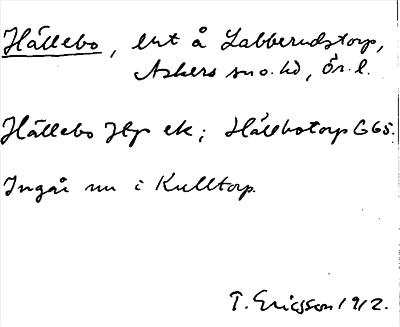 Hällebo, ent å Labberudstorp,
Askers sn o. hd, Ör. l.
Hällebo Hp ek; Hällbotorp G 65.
Ingår nu i Kulltorp.
T. Ericsson 1912.